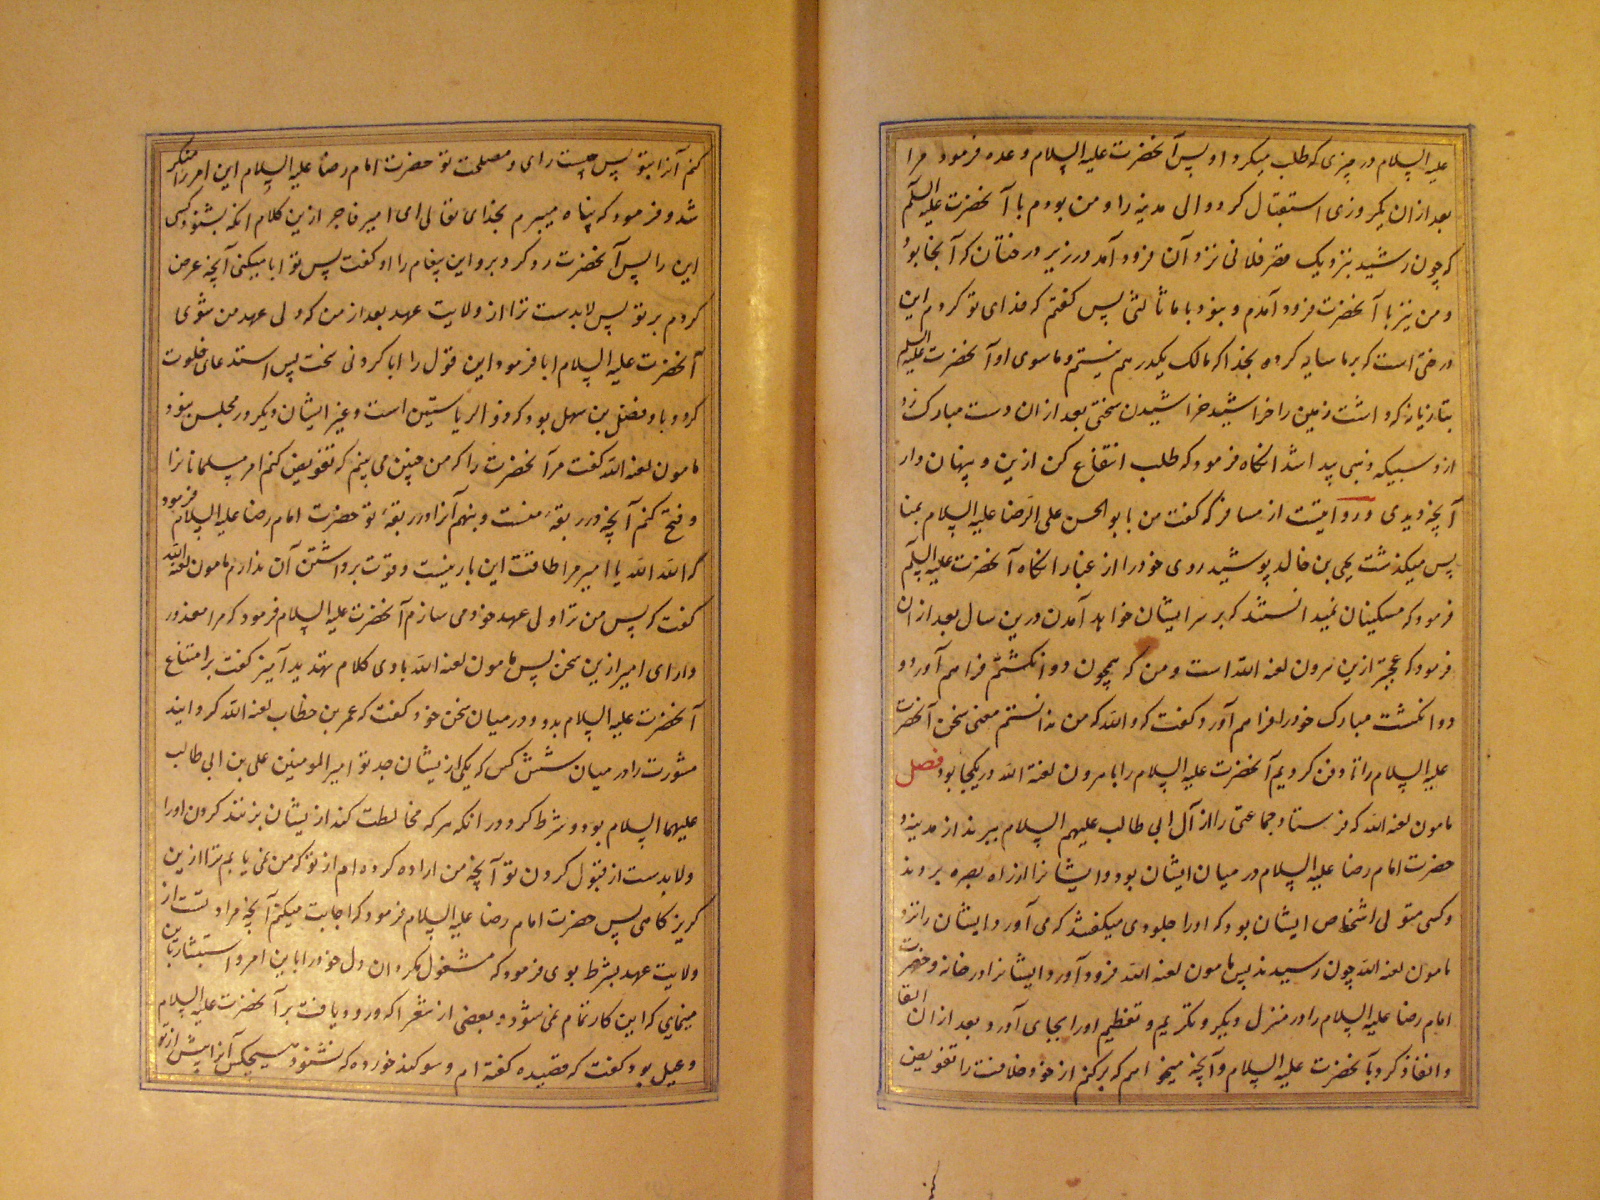 علیه السلام در چیزی که طلب میکرد او پس آنحضرت علیه السلام وعده فرمود مرا
بعد ازان یکروزی استقبال کرد والی مدینه را و من بودم با آنحضرت علیه السلم
که چون رسید بنزدیک قصر فلانی نزد آن فرود آمد در زیر درختان که آنجا بود
و من نیز با آنحضرت فرود آمدم و نبود با ما ثالثی پس گفتم که فدای تو کردم این
درختی است که بر ما سایه کرده بخدا که مالک یکدرهم نیستم و ماسوی او آنحضرت علیه السلم
بتازیانه که داشت زمین را خراشید خراشیدن سختی بعد ازان دست مبارک زد
ازو سبیکه ذهبی پیدا شد انکاه فرمود که طلب انتفاع کن ازین و پنهان دار
آنچه دیدی و روایتست از مسافر که گفت من با ابوالحسن علی الرضا علیه السلام بمنا
پس میگذشت یحیی بن خالد پوشید روی خود را از غبار انکاه آنحضرت علیه السلم
فرمود که مسکینان نمیدانستند که بر سر ایشان خواهد آمدن درین سال بعد ازان
فرمود که عجبتر ازین هرون لعنه الله است و من که همچون دو انکشتم فراهم آورد و
دو انکشت مبارک خود را فراهم آورد گفت که والله که من ندانستم معنی سخن آنحضرت
علیه السلام را تا دفن کردیم آنحضرت علیه السلام را با هرون لعنة الله در یکجا بود فصل
مامون لعنه الله که فرستاد جماعتی را از آل ابی طالب علیهم السلام ببرند از مدینه و
حضرت امام رضا علیه السلام در میان ایشان بود و ایشانرا از راه بصره بردند
و کسی متولی اشخاص ایشان بود که اورا جلودی میکفتند که می آورد ایشان را نزد
مامون لعنه الله چون رسیدند پس مامون لعنه الله فرود آورد ایشانرا در خانه و حضرت
امام رضا علیه السلام را در منزل دیکر و تکریم و تعظیم اورا بجای آورد بعد ازان
و انفاذ کرد بآنحضرت علیه السلام و آنچه میخواهم که برکنم از خود خلافت را تفویض
کنم آنرا بتو پس چیست رای و مصلحت تو حضرت امام رضا علیه السلام این امر را منکر
شد و فرمود که پناه میبرم بخدای تعالی ای امیر فاجر ازین کلام انکه بشنود کسی
این را پس آنحضرت رد کرد برو این پیغام را او گفت پس تو ابا میکنی آنچه عرض
کردم بر تو پس لابدست ترا از ولایت عهد بعد از من که ولی عهد من شوی
آنحضرت علیه السلام ابا فرمود این قول را ابا کردنی سخت پس استدعای خلوت
کرد و با او فضل بن سهل بود که ذو الریاستین است و غیر ایشان دیکر در مجلس نبود
مامون لعنه الله گفت مر آنحضرت را که من چنین می بینم که تفویض کنم امر مسلمانانرا
و فتح کنم آنچه در ربقهٔ منست و بنهم آنرا در ربقهٔ تو حضرت امام رضا علیه السلام فرمود
که الله الله یا امیر مرا طاقت این بار نیست و قوت برداشتن آن ندارم مامون لعنه الله
گفت که پس من ترا ولی عهد خود می سازم آنحضرت علیه السلام فرمود که مرا معذور
دار ای امیر ازین سخن پس مامون لعنه الله با وی کلام تهدید آمیز گفت بر امتناع
آنحضرت علیه السلام بدو و در میان سخن خود گفت که عمر بن خطاب لعنه الله کردانید
مشورت را در میان شش کس که یکی از یشان جد تو امیر المومنین علی بن ابی طالب
علیهما السلام بود و شرط کرد در انکه هر که مخالطت کند از یشان بزنند کردن اورا
و لابدست از قبول کردن تو آنچه من اراده کرده ام از تو که من نمی یابم ترا ازین
کریزکاهی پس حضرت امام رضا علیه السلام فرمود که اجابت میکنم آنچه مرا دتست از
ولایت عهد بشرط بوی فرمود که مشغول مکردان دل خود را باین امر و استبشار باین
مینمای که این کار تمام نمی شود و بعضی از شعرا که ورود یافت بر آنحضرت علیه السلام
دعبل بود گفت که قصیده گفته ام و سوکند خورده که نشنود هیچکس آنرا پیش از تو